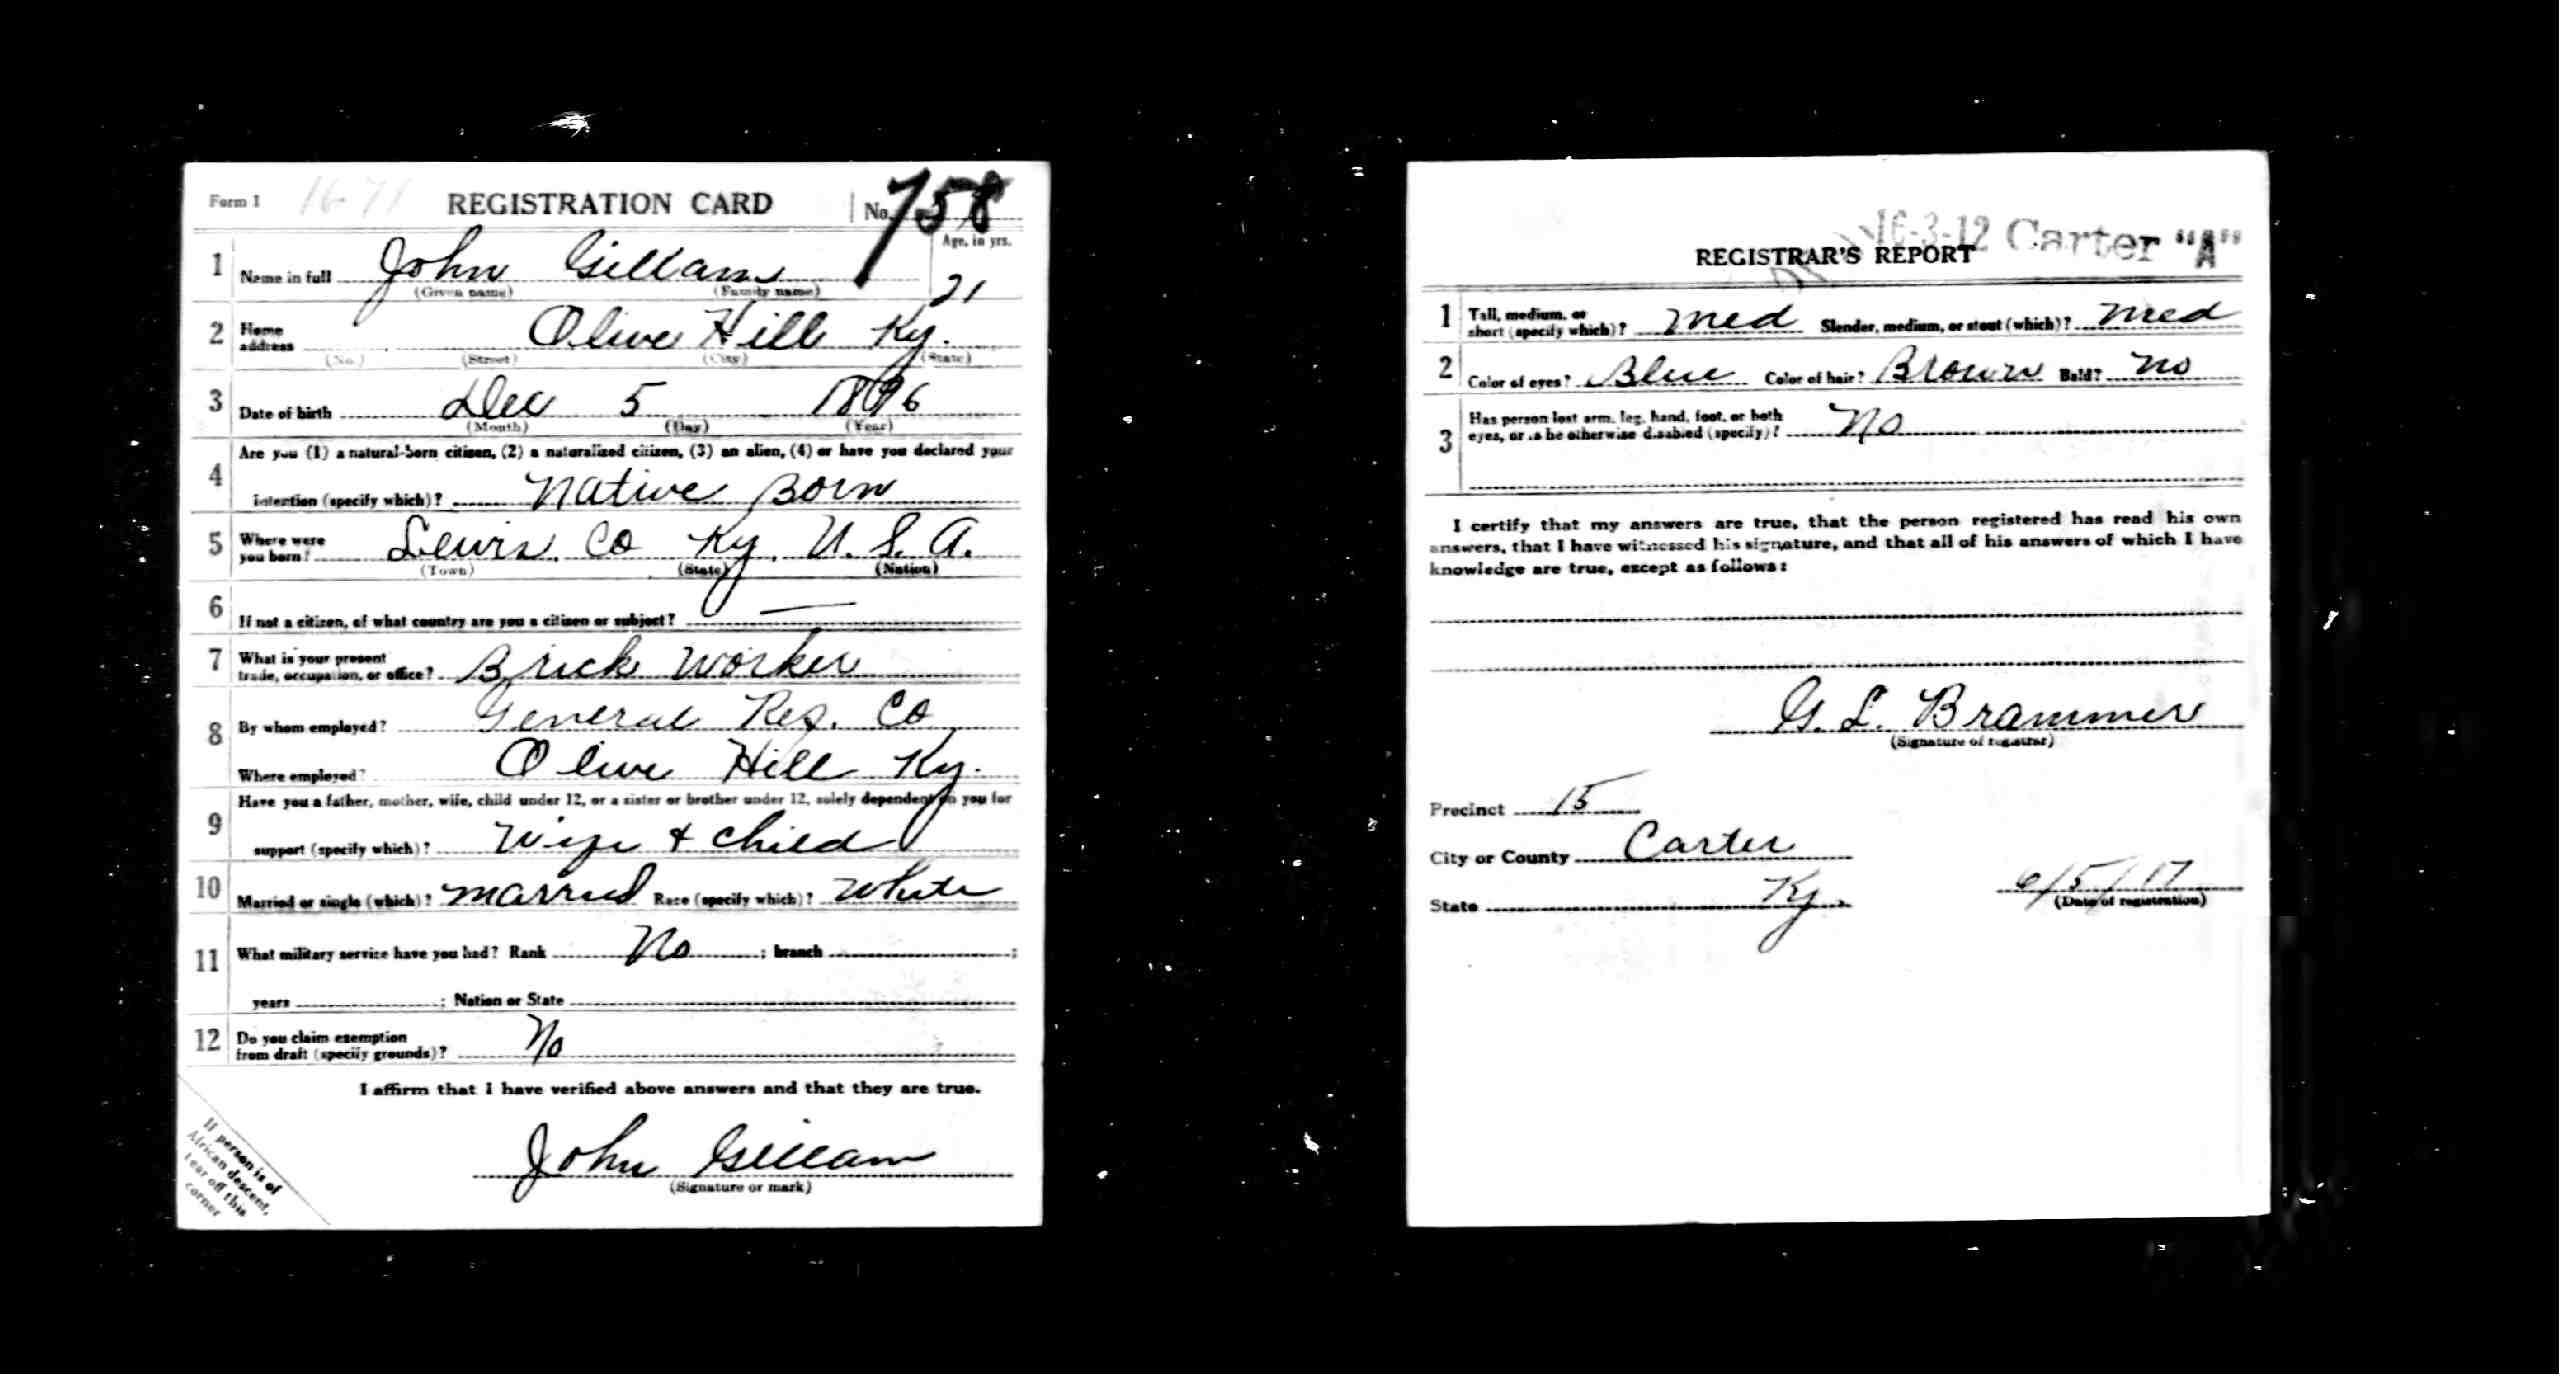 Form 1 1671 REGISTRATION CARD No. 758
1 Name in full John Gillam Age, in yrs. 21
(Given name) (Family name)
2 Home address Olive Hill Ky.
(No.) (Street) (City) (State)
3 Date of birth Dec 5 1896
(Month) (Day) (Year)
4 Are you (1) a natural-born citizen, (2) a naturalized citizen, (3) an alien, (4) or have you declared your
intention (specify which)? Native Born
5 Where were you born? Lewis Co Ky. U. S. A.
(Town) (State) (Nation)
6 If not a citizen, of what country are you a citizen or subject? —
7 What is your present trade, occupation, or office? Brick Worker
8 By whom employed? General Res. Co
Where employed? Olive Hill Ky.
9 Have you a father, mother, wife, child under 12, or a sister or brother under 12, solely dependent on you for
support (specify which)? Wife & child
10 Married or single (which)? Married Race (specify which)? White
11 What military service have you had? Rank No ; branch ;
years ; Nation or State
12 Do you claim exemption from draft (specify grounds)? No
I affirm that I have verified above answers and that they are true.
John Gillam
(Signature or mark)
If person is of
African descent,
tear off this
corner
16-3-12 Carter "A"
REGISTRAR'S REPORT
1 Tall, medium, or short (specify which)? Med Slender, medium, or stout (which)? Med
2 Color of eyes? Blue Color of hair? Brown Bald? No
3 Has person lost arm, leg, hand, foot, or both
eyes, or is he otherwise disabled (specify)? No
I certify that my answers are true, that the person registered has read his own
answers, that I have witnessed his signature, and that all of his answers of which I have
knowledge are true, except as follows:
G. L. Brammer
(Signature of registrar)
Precinct 15
City or County Carter
State Ky. 6/5/17
(Date of registration)